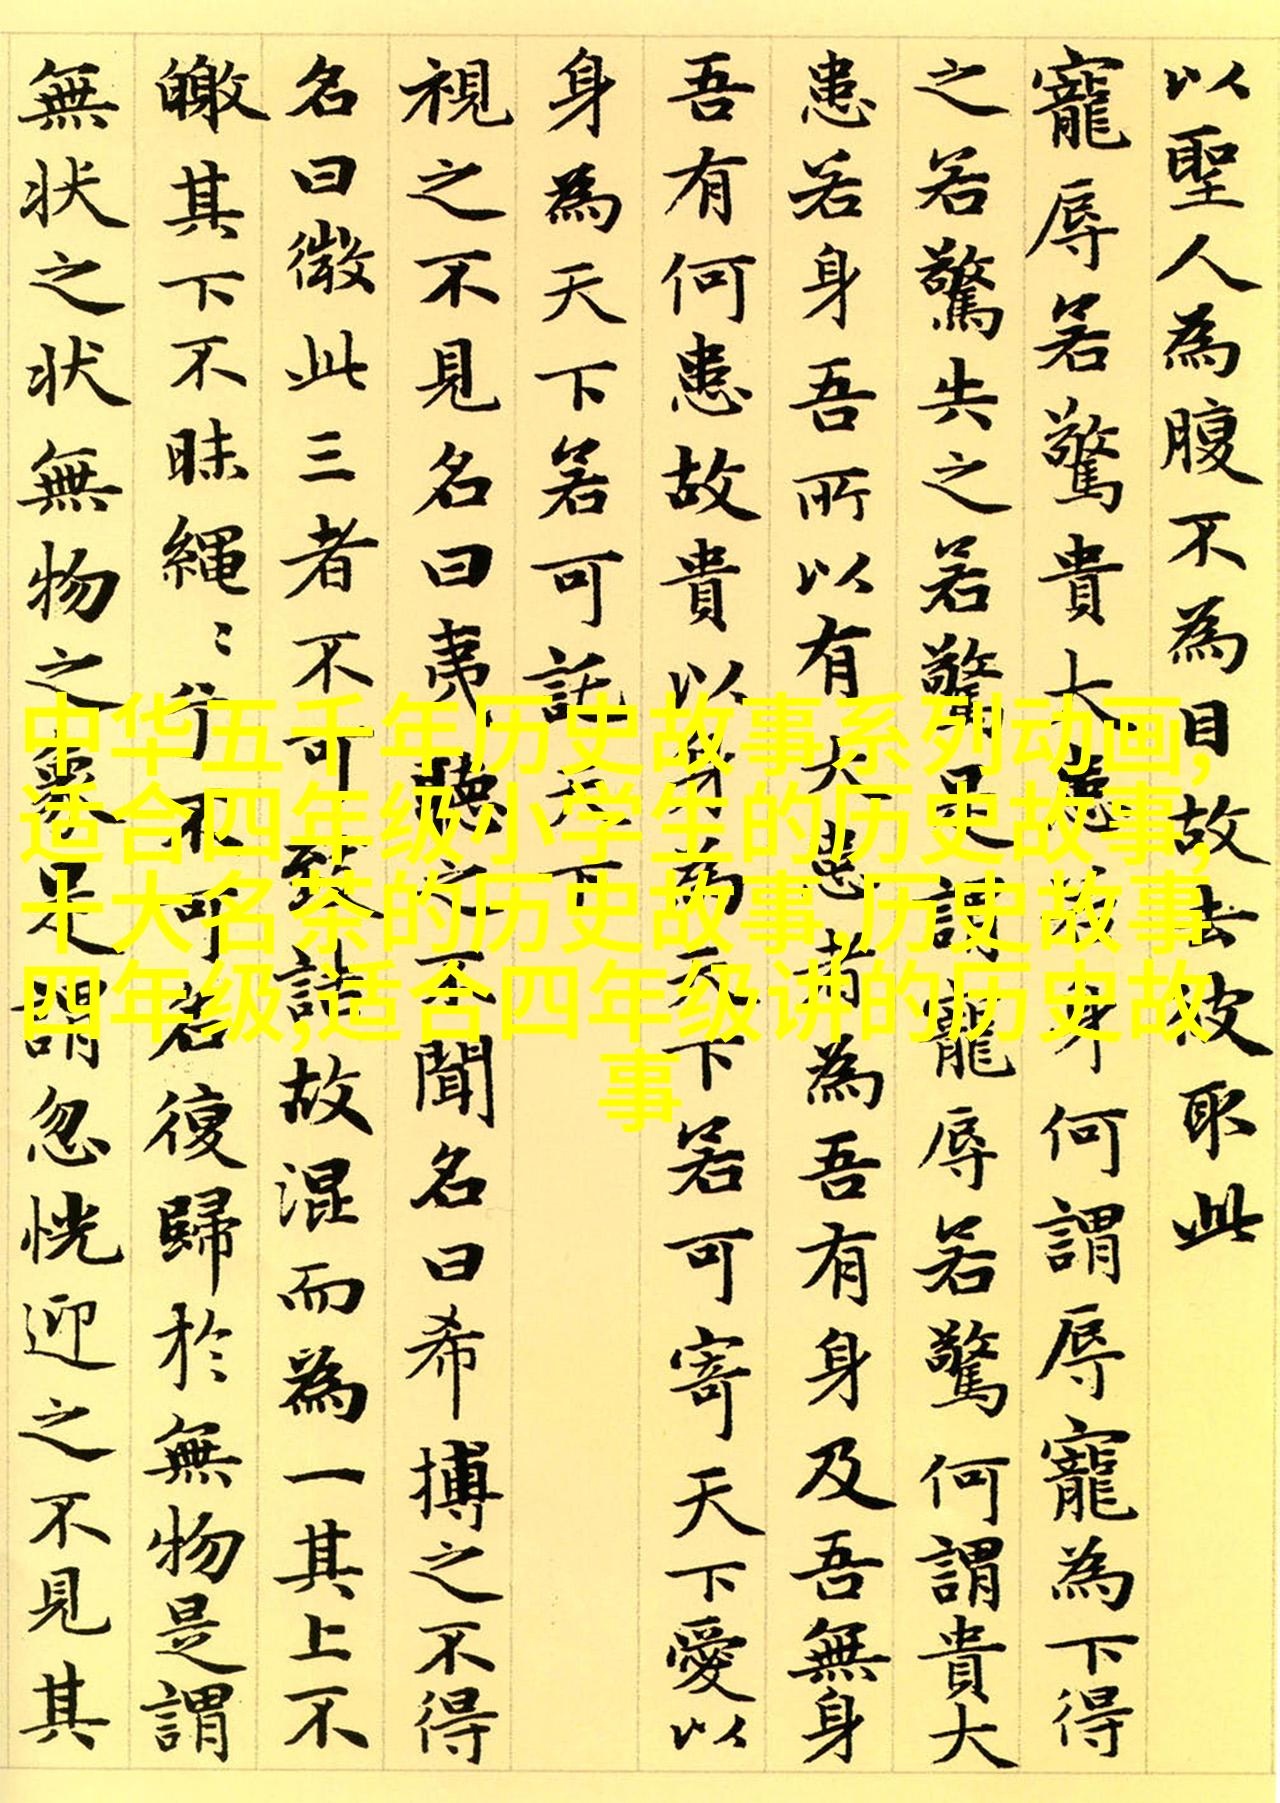 以聖人為腹不為目故去彼取此
寵辱若驚貴大患若身何謂辱寵為下得
之若驚失之若驚是謂寵辱若驚何謂貴大
患若身吾所以有大患者為吾有身及吾無身
吾有何患故貴以身為天下若可寄天下愛以
身為天下若可託天下
視之不見名曰夷聽之不聞名曰希搏之不得
名曰微此三者不可致詰故混而為一其上不
皦其下不昧繩〻兮不可名復歸於無物是謂
無状之状無物之象是謂忽恍迎之不見其
中华五千年历史故事系列动画,
适合四年级小学生的历史故事,
十大名茶的历史故事,历史故事
四年级,适合四年级讲的历史故
事